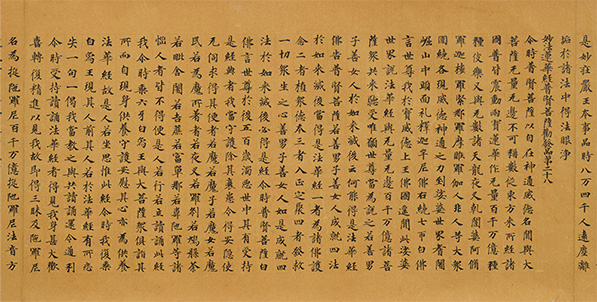 是妙莊嚴王本事品時八万四千人遠塵離
垢於諸法中得法眼淨
妙法蓮華經普賢菩薩勸發品第二十八
尒時普賢菩薩以自在神通威德名聞與大
菩薩无量无邊不可稱數從東方來所經諸
國普皆震動雨寶蓮華作无量百千万億種
種伎樂又與无數諸天龍夜叉乾闥婆阿脩
羅迦樓羅緊那羅摩睺羅伽人非人等大衆
圍繞各現威德神通之力到娑婆世界耆闍
崛山中頭面礼釋迦牟尼佛右繞七帀白佛
言世尊我於寶威德上王佛國遥聞此娑婆
世界說法華經與无量无邊百千万億諸菩
薩衆共來聽受唯願世尊當為說之若善男
子善女人於如來滅後云何能得是法華經
佛告普賢菩薩若善男子善女人成就四法
於如來滅後當得是法華經一者為諸佛護
念二者植衆德本三者入正定聚四者發救
一切衆生之心善男子善女人如是成就四
法於如來滅後必得是經尒時普賢菩薩白
佛言世尊於後五百歲濁惡世中其有受持
是經典者我當守護除其衰患令得安隱使
无伺求得其便者若魔若魔子若魔女若魔
民若為魔所著者若夜叉若羅刹若鳩槃荼
若毗舍闍若吉蔗若富單那若韋陁羅等諸
惱人者皆不得便是人若行若立讀誦此經
我尒時乘六牙白象王與大菩薩衆俱詣其
所而自現身供養守護安慰其心亦為供養
法華經故是人若坐思惟此經尒時我復乘
白象王現其人前其人若於法華經有所忘
失一句一偈我當教之與共讀誦還令通利
尒時受持讀誦法華經者得見我身甚大歡
喜轉復精進以見我故即得三昧及陁羅尼
名為旋陁羅尼百千万億旋陁羅尼法音方